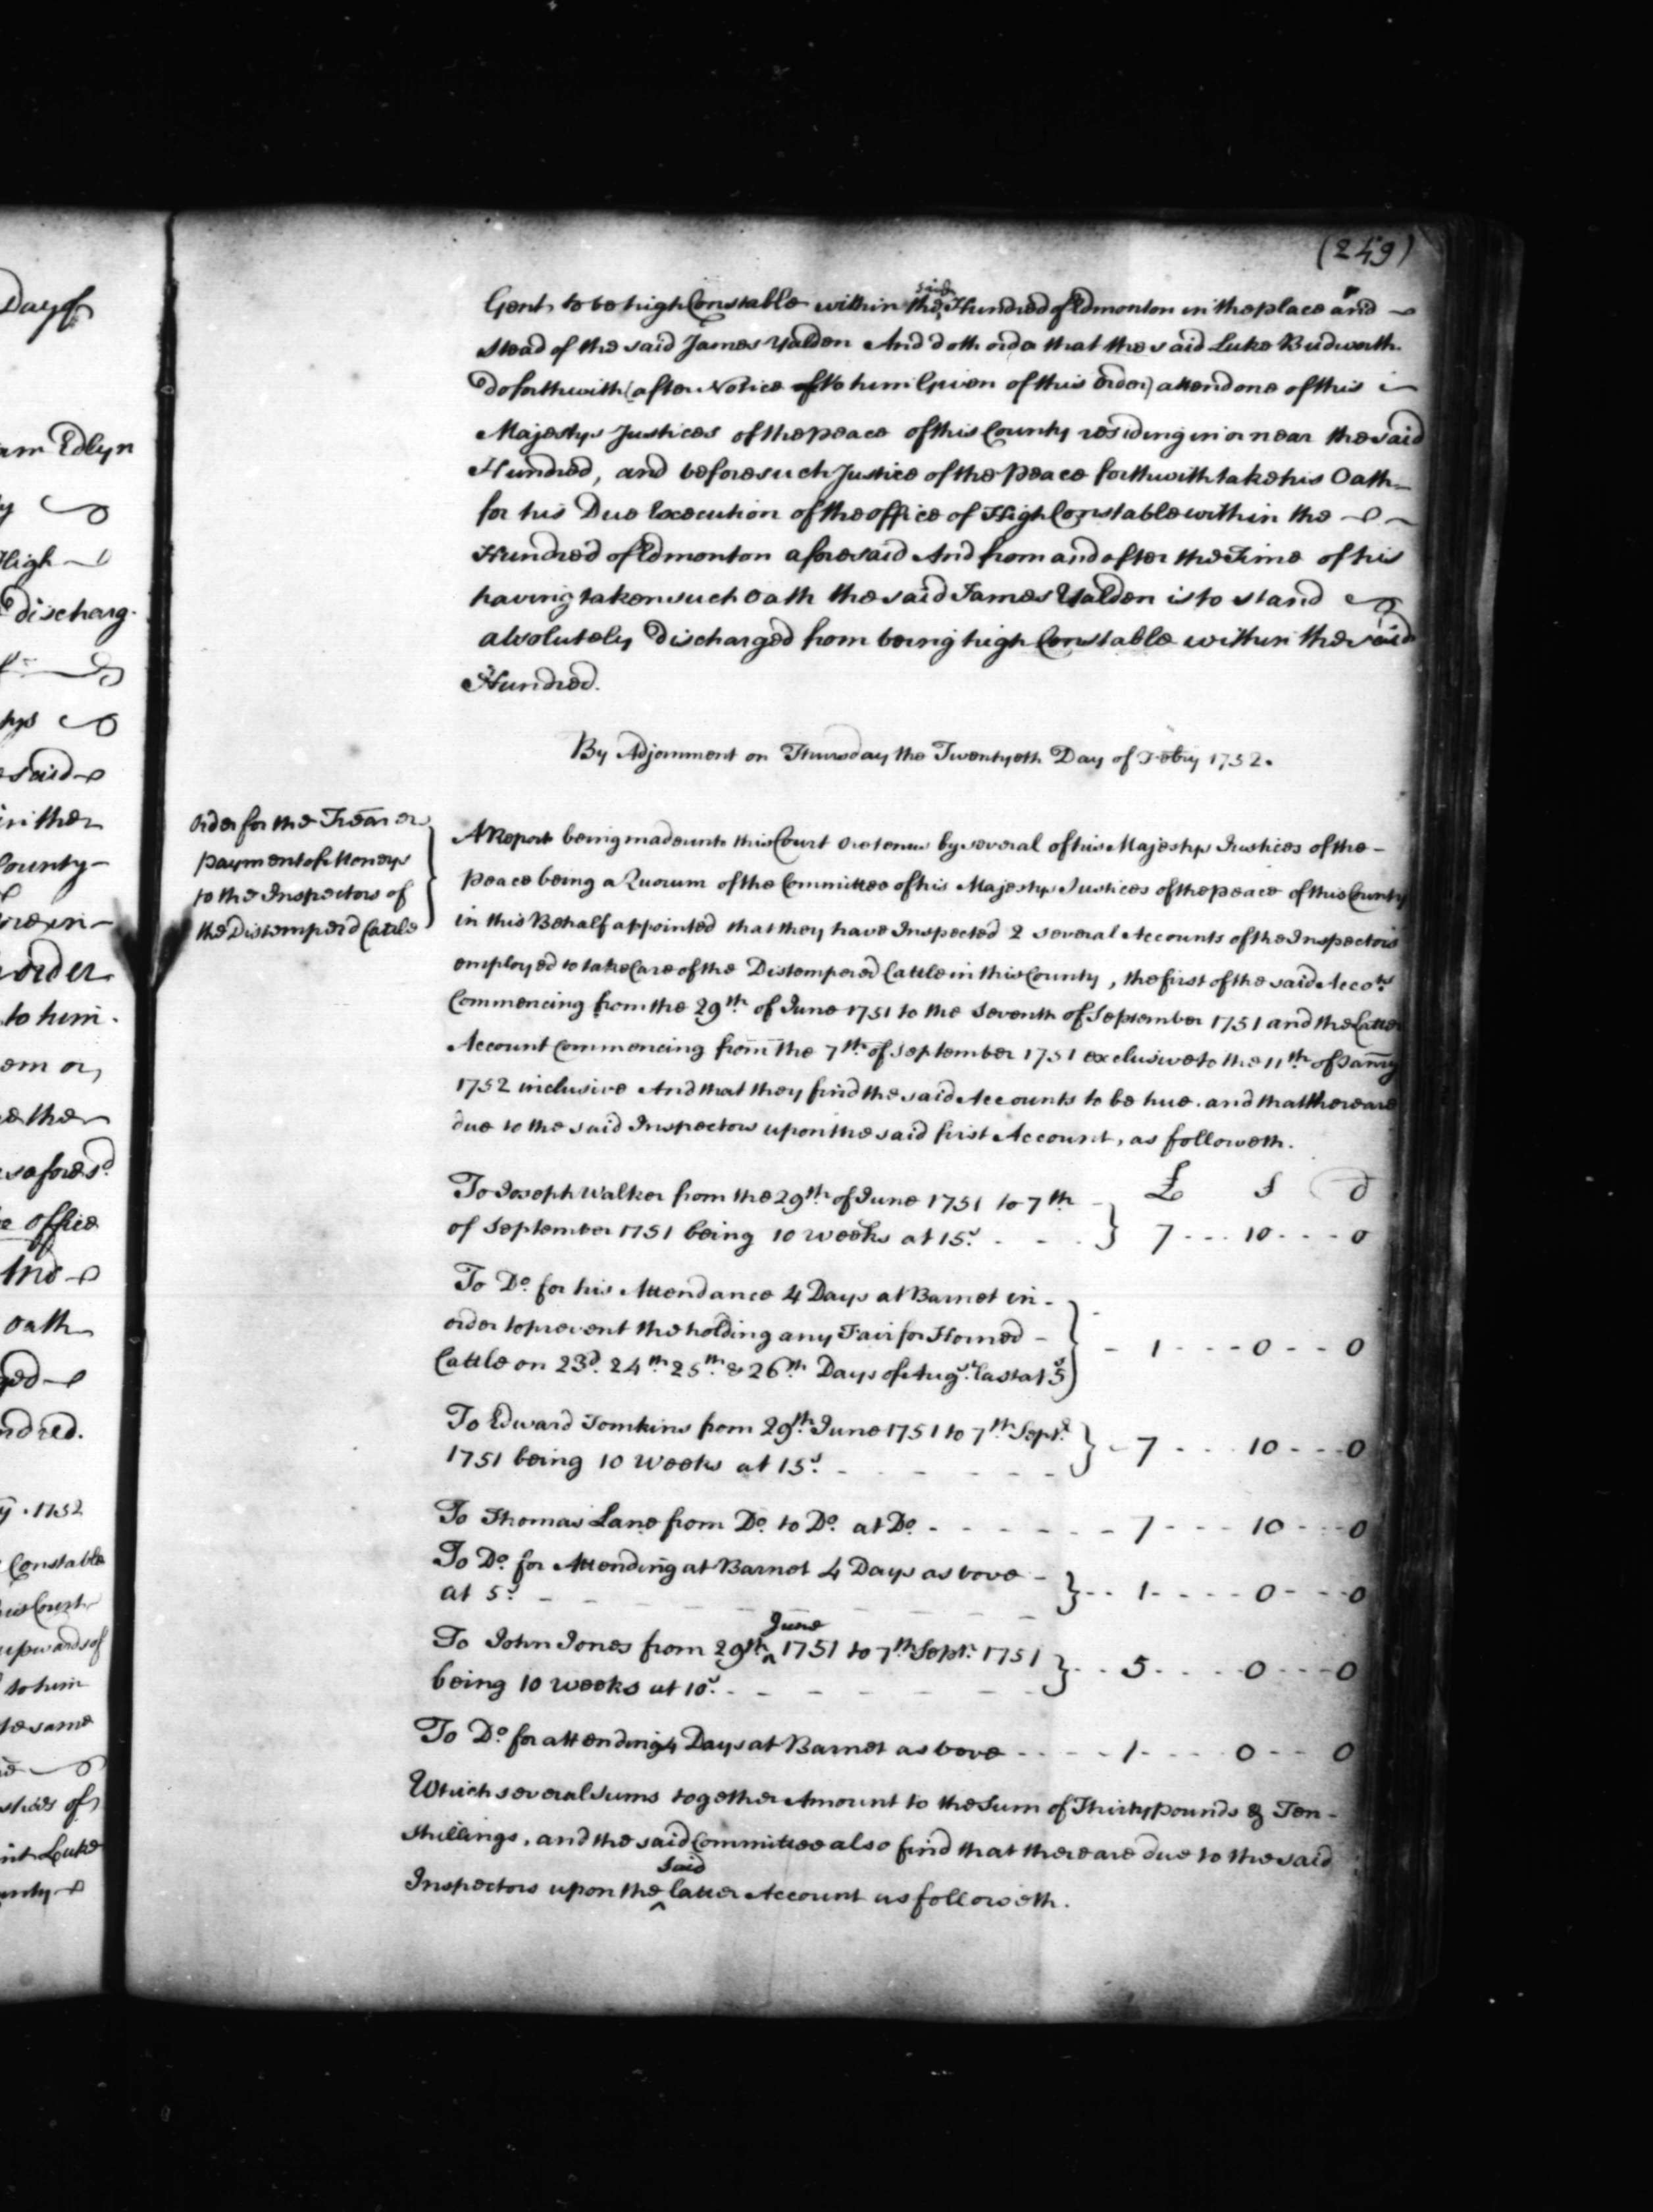 Day of
am Edlyn
y
High
discharg-
hys
said
in the
County-
re in-
order
to him.
em or
e the
s afores.d
e office
And
Oath
ged
ndred.
y. 1752
Constable
his Court
upwards of
to him
he same
stices of
int Luke
unty
(249)
Gent, to be high Constable within the said Hundred of Edmonton in the place and
Stead of the said James Yalden And doth order that the said Luke Budworth
Do forthwith (after Notice of to him Given of this Order) attend one of this
Majestys Justices of the peace of this County residing in or near the said
Hundred, and before such Justice of the Peace forthwith take his Oath
for his Due Execution of the office of High Constable within the
Hundred of Edmonton aforesaid And from and after the Time of his
having taken such Oath the said James Yalden is to stand
absolutely Discharged from being high Constable within the said
Hundred.
By Adjornment on Thursday the Twentyeth Day of Febry 1752.
Order for the Trea͞rer
payment of Moneys
to the Inspectors of
the Distemperd Cattle
A Report being made unto this Court Ore tenus by several of his Majestys Justices of the-
Peace being a Quorum of the Committee of his Majestys Justices of the peace of this County
in this Behalf appointed that they have Inspected 2 several Accounts of the Inspectors
employed to take Care of the Distempered Cattle in this County, the first of the said Acco.ts
Commencing from the 29.th of June 1751 to the Seventh of September 1751 and the Latter
Account Commencing from the 7.th of September 1751 exclusive to the 11.th of Janry
1752 inclusive And that they find the said Accounts to be true. and that there are
due to the said Inspectors upon the said first Account, as followeth.
£ s d
To Joseph Walker from the 29.th of June 1751 to 7th
of September 1751 being 10 weeks at 15.s - - - 7 - - - 10 - - - 0
To D.o for his Attendance 4 Days at Barnet in-
order to prevent the holding any Fair for Horned -
Cattle on 23.d 24.th 25.th & 26.th Days of Aug.st last at 5.s - 1 - - - 0 - - - 0
To Edward Tomkins from 29.th June 1751 to 7.th Sept.r
1751 being 10 Weeks at 15.s - - - 7 - - - 10 - - - 0
To Thomas Lane from D.o to D.o at D.o - - - 7 - - - 10 - - - 0
To D.o for Attending at Barnet 4 Days as bove -
at 5.s - - - 1 - - - 0 - - - 0
To John Jones from 29th June 1751 to 7.th Sept.r 1751
being 10 weeks at 10.s - - - 5 - - - 0 - - - 0
To D.o for attending 4 Days at Barnet as bove - - - 1 - - - 0 - - 0
Which several Sums together Amount to the Sum of Thirty pounds & Ten -
Shillings, and the said Committee also find that there are due to the said
Inspectors upon the said latter Account as followeth.